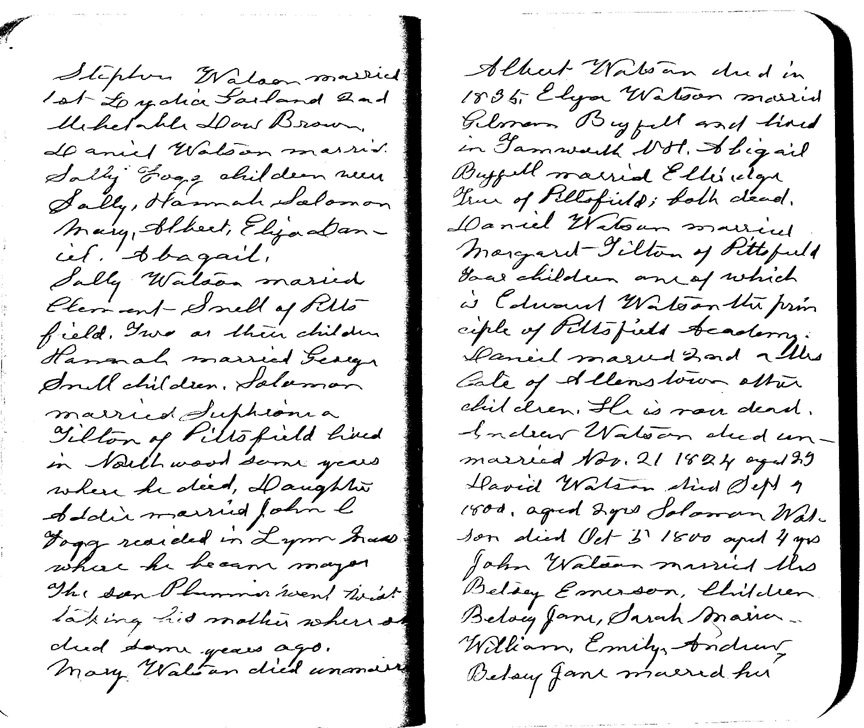 Stephen Watson married
1st Lydia Garland 2nd
Mehetable Dow Brown.
Daniel Watson married
Sally Fogg children were
Sally, Hannah Solomon
Mary, Albert, Eliza Dan-
iel. Abagail.
Sally Watson maried
Clement Snell of Pitts
field. Two or their children
Hannah married George
Snell children. Solomon
married Suphronia
Tilton of Pittsfield lived
in Northwood some years
where he died, Daughter
Addie married John C
Fogg resided in Lynn Mass
where he became mayor
The son Plummer went west
taking his mother where
died some years ago.
Mary Watson died unmarr
Albert Watson died in
1835, Elyza Watson married
Gilman Buzzell and lived
in Tamworth N.H. Abigail
Buzzell married
True of Pittsfield; both dead.
Daniel Watson married
Margaret Tilton of Pittsfield
Four children one of which
is Edward Watson the prin
ciple of Pittsfield Academy.
Daniel maried 2nd a Mrs
Cate of Allenstown other
children. He is now dead.
Andrew Watson died un-
married Nov. 21 1824 aged 29
David Watson died Sept 9
1800, aged 2 yrs Solomon Wat-
son died Oct 5 1800 aged 4 yrs
John Watson married Mrs
Betsey Emerson, Children
Betsey Jane, Sarah Maria
William, Emily, Andrew,
Betsey Jane married her